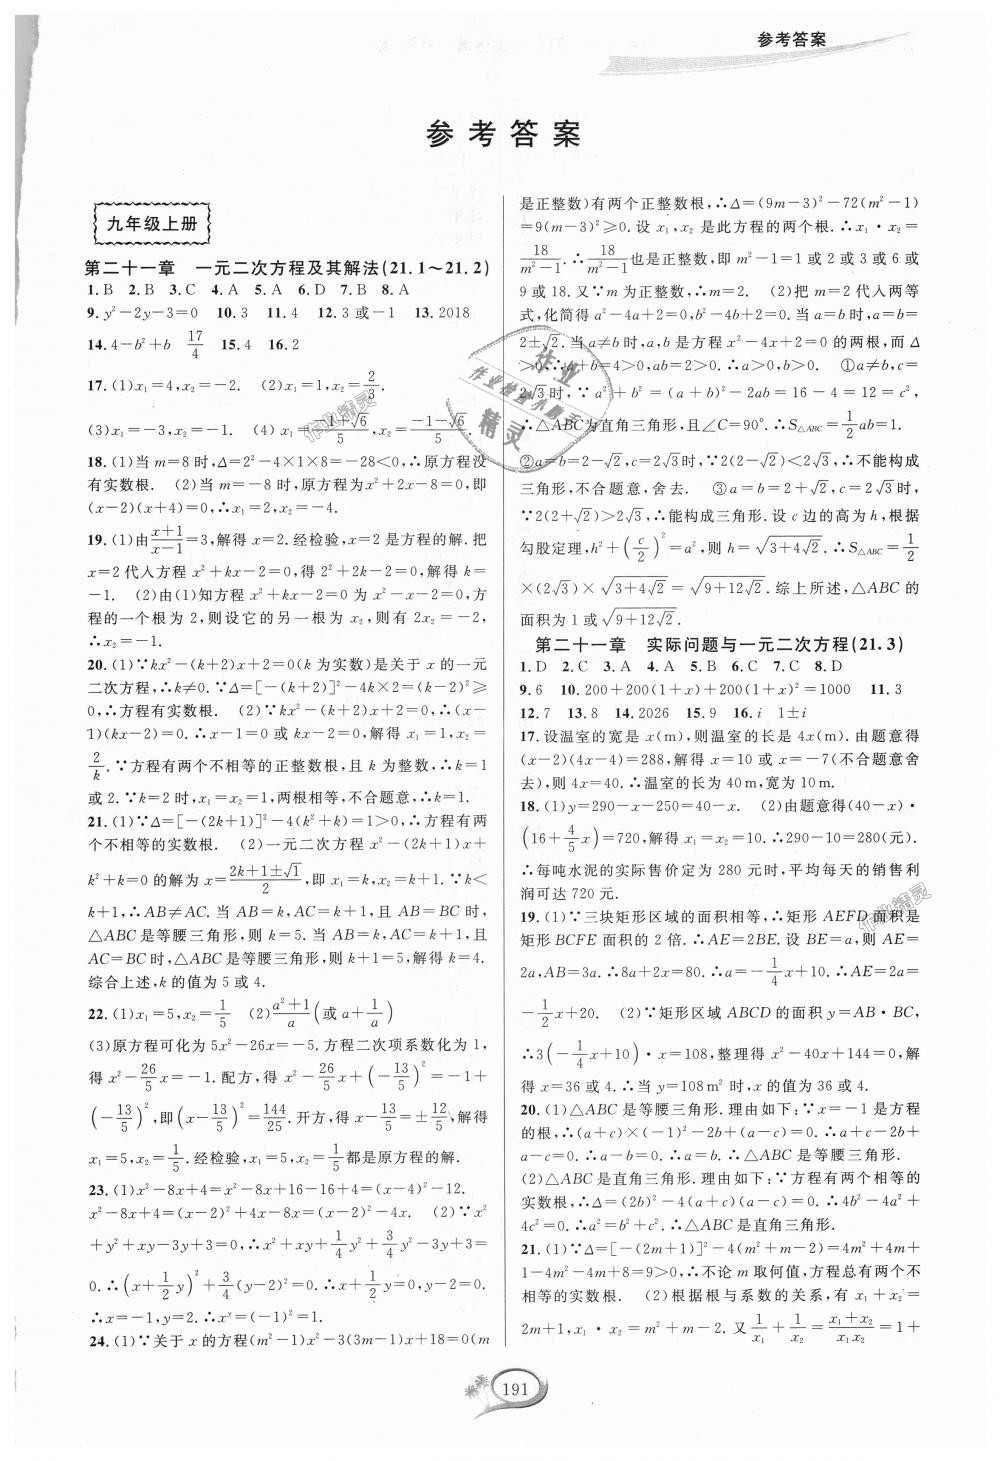 参考答案
参考答案
九年级上册
第二十一章　一元二次方程及其解法(21.1～21.2)
1.B　2.B　3.C　4.A　5.A　6.D　7.B　8.A
9.y²－2y－3＝0　10.3　11.4　12.3或－1　13.2018
14.4－b²＋b　17/4　15.4　16.2
17.(1)x₁＝4,x₂＝－2.　(2)x₁＝1,x₂＝2/3.
(3)x₁＝－3,x₂＝－1.　(4) x₁＝(－1＋√6)/5,x₂＝(－1－√6)/5.
18.(1)当 m＝8时,Δ＝2²－4×1×8＝－28＜0,∴原方程没
有实数根.　(2)当 m＝－8时,原方程为x²＋2x－8＝0,即
(x－2)(x＋4)＝0,∴x₁＝2,x₂＝－4.
19.(1)由(x＋1)/(x－1)＝3,解得 x＝2.经检验,x＝2是方程的解.把
x＝2代入方程 x²＋kx－2＝0,得 2²＋2k－2＝0,解得 k＝
－1.　(2)由(1)知方程 x²＋kx－2＝0 为 x²－x－2＝0,方
程的一个根为 2,则设它的另一根为 x₂,则有 2x₂＝－2,
∴x₂＝－1.
20.(1)∵kx²－(k＋2)x＋2＝0(k 为实数)是关于 x 的一元
二次方程,∴k≠0.∵Δ＝[－(k＋2)]²－4k×2＝(k－2)²≥
0,∴方程有实数根.　(2)∵kx²－(k＋2)x＋2＝0,∴(x－
1)(kx－2)＝0.∴x－1＝0 或 kx－2＝0,解得 x₁＝1,x₂＝
2/k.∵方程有两个不相等的正整数根,且 k 为整数,∴k＝1
或2.∵k＝2时,x₁＝x₂＝1,两根相等,不合题意,∴k＝1.
21.(1)∵Δ＝[－(2k＋1)]²－4(k²＋k)＝1＞0,∴方程有两
个不相等的实数根.　(2)一元二次方程 x²－(2k＋1)x＋
k²＋k＝0 的解为 x＝(2k＋1±√1)/2,即 x₁＝k,x₂＝k＋1.∵k＜
k＋1,∴AB≠AC.当 AB＝k,AC＝k＋1,且 AB＝BC 时,
△ABC是等腰三角形,则 k＝5.当 AB＝k,AC＝k＋1,且
AC＝BC 时,△ABC是等腰三角形,则 k＋1＝5,解得 k＝4.
综合上述,k 的值为 5 或 4.
22.(1)x₁＝5,x₂＝1/5　(2)(a²＋1)/a(或 a＋1/a)
(3)原方程可化为 5x²－26x＝－5.方程二次项系数化为 1,
得 x²－26/5x＝－1.配方,得 x²－26/5x＋(－13/5)²＝－1＋
(－13/5)²,即(x－13/5)²＝144/25.开方,得 x－13/5＝±12/5,解得
x₁＝5,x₂＝1/5.经检验,x₁＝5,x₂＝1/5都是原方程的解.
23.(1)x²－8x＋4＝x²－8x＋16－16＋4＝(x－4)²－12.
x²－8x＋4＝(x－2)²＋4x－8x＝(x－2)²－4x.　(2)∵x²
＋y²＋xy－3y＋3＝0,∴x²＋xy＋1/4y²＋3/4y²－3y＋3＝
0.∴(x＋1/2y)²＋3/4(y－2)²＝0.∴x＋1/2y＝0,y－2＝0.
∴x＝－1,y＝2.∴xʸ＝(－1)²＝1.
24.(1)∵关于 x 的方程(m²－1)x²－3(3m－1)x＋18＝0(m
是正整数)有两个正整数根,∴Δ＝(9m－3)²－72(m²－1)
＝9(m－3)²≥0.设 x₁,x₂ 是此方程的两个根.∴x₁・x₂＝
18/(m²－1).∴18/(m²－1)也是正整数,即 m²－1＝1 或 2 或 3 或 6 或
9 或 18.又∵m 为正整数,∴m＝2.　(2)把 m＝2 代入两等
式,化简得 a²－4a＋2＝0,b²－4b＋2＝0.当 a＝b时,a＝b＝
2±√2.当 a≠b 时,a,b 是方程 x²－4x＋2＝0 的两根,而 Δ
＞0,∴a＋b＝4＞0,ab＝2＞0.∴a＞0,b＞0.　①a≠b,c＝
2√3时,∵a²＋b²＝(a＋b)²－2ab＝16－4＝12＝c²,
∴△ABC为直角三角形,且∠C＝90°.∴S△ABC＝1/2ab＝1.
②a＝b＝2－√2,c＝2√3时,∵2(2－√2)＜2√3,∴不能构成
三角形,不合题意,舍去.　③a＝b＝2＋√2,c＝2√3时,
∵2(2＋√2)＞2√3,∴能构成三角形.设 c 边的高为 h,根据
勾股定理,h²＋(c/2)²＝a²,则 h＝√(3＋4√2).∴S△ABC＝1/2
×(2√3)×√(3＋4√2)＝√(9＋12√2).综上所述,△ABC 的
面积为 1 或√(9＋12√2).
第二十一章　实际问题与一元二次方程(21.3)
1.D　2.C　3.A　4.A　5.B　6.C　7.C　8.D
9.6　10.200＋200(1＋x)＋200(1＋x)²＝1000　11.3
12.7　13.8　14.2026　15.9　16.i　1±i
17.设温室的宽是 x(m),则温室的长是 4x(m).由题意得
(x－2)(4x－4)＝288,解得 x＝10 或 x＝－7(不合题意舍
去),则 4x＝40.∴温室的长为 40m,宽为 10m.
18.(1)y＝290－x－250＝40－x.　(2)由题意得(40－x)・
(16＋4/5x)＝720,解得 x₁＝x₂＝10.∴290－10＝280(元).
∴每吨水泥的实际售价定为 280 元时,平均每天的销售利
润可达 720 元.
19.(1)∵三块矩形区域的面积相等,∴矩形 AEFD 面积是
矩形 BCFE 面积的 2 倍.∴AE＝2BE.设 BE＝a,则 AE＝
2a,AB＝3a.∴8a＋2x＝80.∴a＝－1/4x＋10.∴AE＝2a＝
－1/2x＋20.　(2)∵矩形区域 ABCD 的面积 y＝AB・BC,
∴3(－1/4x＋10)・x＝108,整理得 x²－40x＋144＝0,解
得 x＝36 或 4.∴当 y＝108m² 时,x 的值为 36 或 4.
20.(1)△ABC 是等腰三角形.理由如下:∵x＝－1 是方程
的根,∴(a＋c)×(－1)²－2b＋(a－c)＝0.∴a＋c－2b＋
a－c＝0.∴a－b＝0.∴a＝b.∴△ABC 是等腰三角形.
(2)△ABC 是直角三角形.理由如下:∵方程有两个相等的
实数根,∴Δ＝(2b)²－4(a＋c)(a－c)＝0.∴4b²－4a²＋
4c²＝0.∴a²＝b²＋c².∴△ABC是直角三角形.
21.(1)∵Δ＝[－(2m＋1)]²－4(m²＋m－2)＝4m²＋4m＋
1－4m²－4m＋8＝9＞0,∴不论 m 取何值,方程总有两个不
相等的实数根.　(2)根据根与系数的关系,有 x₁＋x₂＝
2m＋1,x₁・x₂＝m²＋m－2.又1/x₁＋1/x₂＝(x₁＋x₂)/(x₁x₂)＝1＋
191
作业
作业检查小助手
精灵
作业精灵
作业精灵